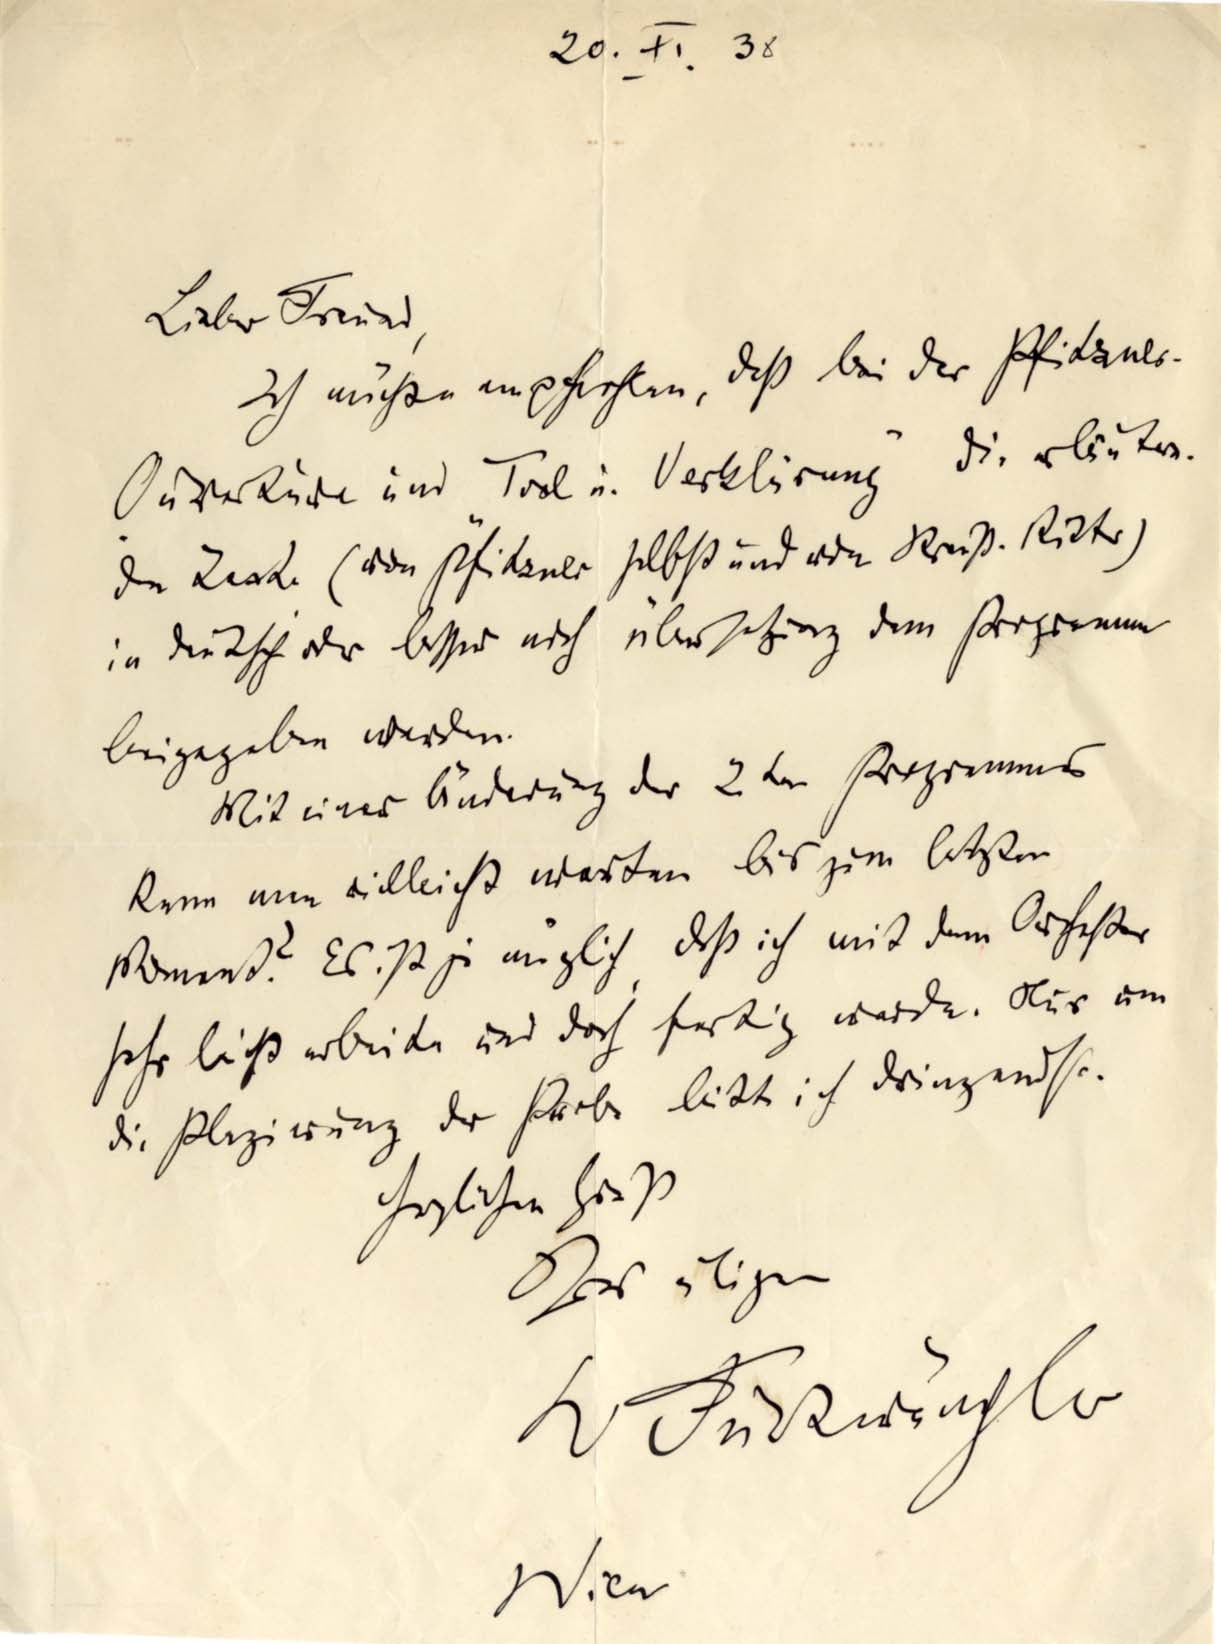 20. XI. 38
Lieber Freund,
Ich möchte empfehlen, daß bei der Pfitzner-
Ouverture und "Tod u. Verklärung" die erläutern-
den Texte (von Pfitzner selbst und von Strauß-Ritter)
in deutsch oder besser noch Übersetzung dem Programm
beigegeben werden.
Mit einer Änderung des 2ten Programmes
kann man vielleicht warten bis zum letzten
Moment? Es ist ja möglich, daß ich mit dem Orchester
sehr leicht arbeite und doch fertig werde. Nur um
die Plazierung der Probe bitte ich dringendst.
Herzlichen Gruß
Ihres eiligen
W Furtwängler
Wien